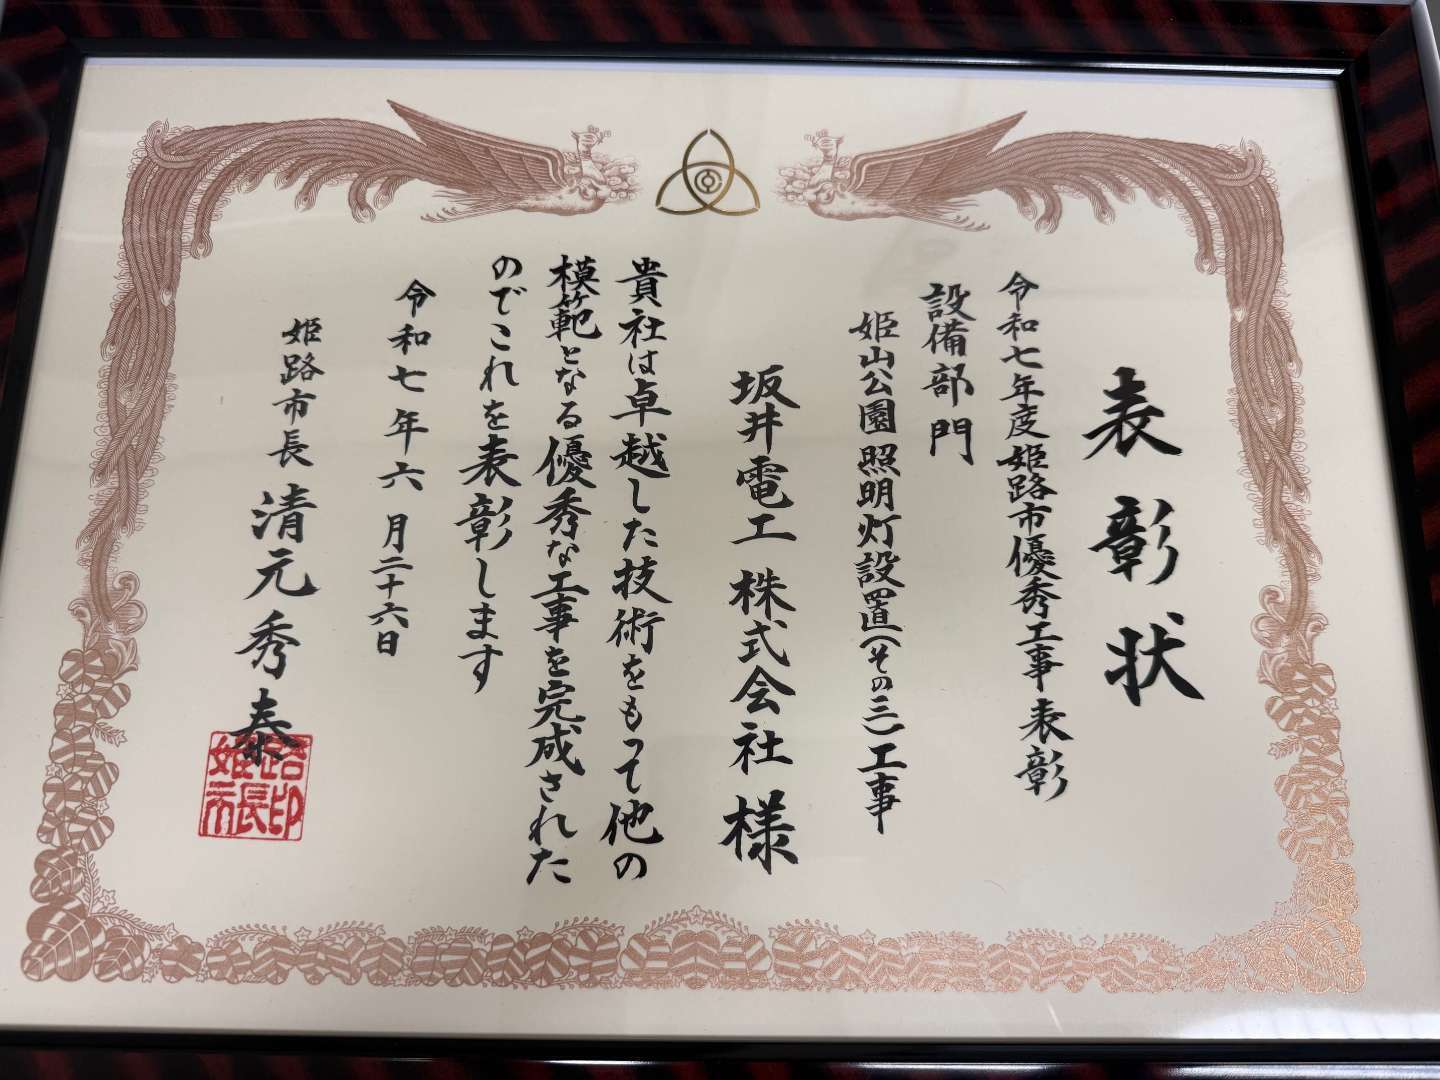 表彰状
令和七年度姫路市優秀工事表彰
設備部門
姫山公園照明灯設置(その三)工事
坂井電工株式会社様
貴社は卓越した技術をもって他の
模範となる優秀な工事を完成された
のでこれを表彰します
令和七年六月二十六日
姫路市長 清元秀泰
姫路市長印